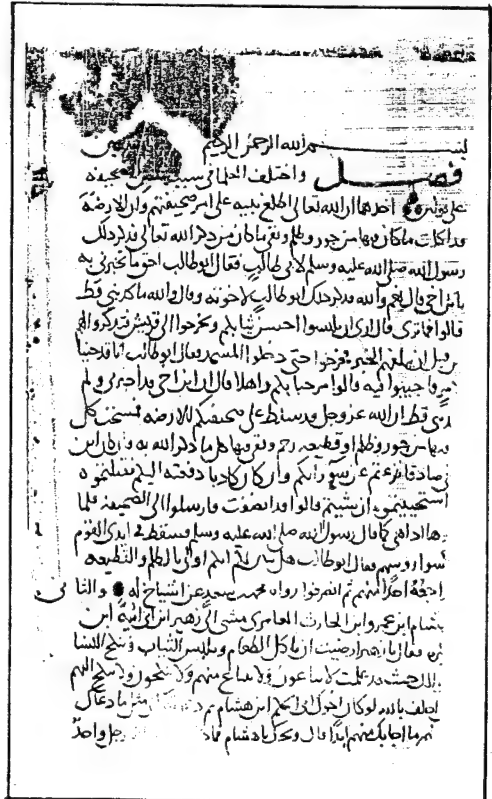 بسم الله الرحمن الرحيم
فصل واختلف العلماء في سبب نقض الصحيفة
على قولين احدهما ان الله تعالى اطلع نبيه على امر صحيفتهم وان الارضة
قد اكلت ما كان فيها من جور وظلم وبقي ما كان من ذكر الله تعالى فذكر ذلك
رسول الله صلى الله عليه وسلم لابي طالب فقال ابو طالب احق ما تخبرني به
يا ابن اخي قال نعم والله فذكر ذلك ابو طالب لاخوته وقال والله ما كذبني قط
قالوا فما ترى قال ارى ان تلبسوا احسن ثيابكم وتخرجوا الى قريش فتذكروا لهم
قبل ان يبلغهم الخبر فخرجوا حتى دخلوا المسجد فقال ابو طالب انا قد جينا
فاجيبوا اليه قالوا مرحبا بكم واهلا قال ان ابن اخي قد اخبرني ولم
قط ان الله عز وجل قد سلط على صحيفتكم الارضه فمسحت كل
من جور وظلم او قطيعه رحم وبقي فيها كل ما ذكر الله به فان كان ابن
صادقا نزعتم عن سو رايكم وان كان كاذبا دفعته اليكم فقتلتموه
استحييتموه ان شيتم قالوا قد انصفت فارسلوا الى الصحيفه فلما
هي كما قال رسول الله صلى الله عليه وسلم فسقط في ايدي القوم
روسهم فقال ابو طالب هل تبين لكم انكم اولى بالظلم والقطيعه
احد منهم ثم انصرفوا رواه محمد بن سعد عن اشياخ له والثاني
هشام ابن عمرو ابن الحارث العامري مشى الى زهير ابن ابي امية ابن
فقال يا زهير ارضيت ان تاكل الطعام وتلبس الثياب وتنكح النسا
حيث قد علمت لا يباعون ولا يبتاع منهم ولا ينكحون ولا ينكح اليهم
احلف بالله لو كان اخوال ابي الحكم ابن هشام ثم دعوته الى مثل ما دعاك
ما اجابك منهم ابدا قال ويحك يا هشام فماذا رجل واحد